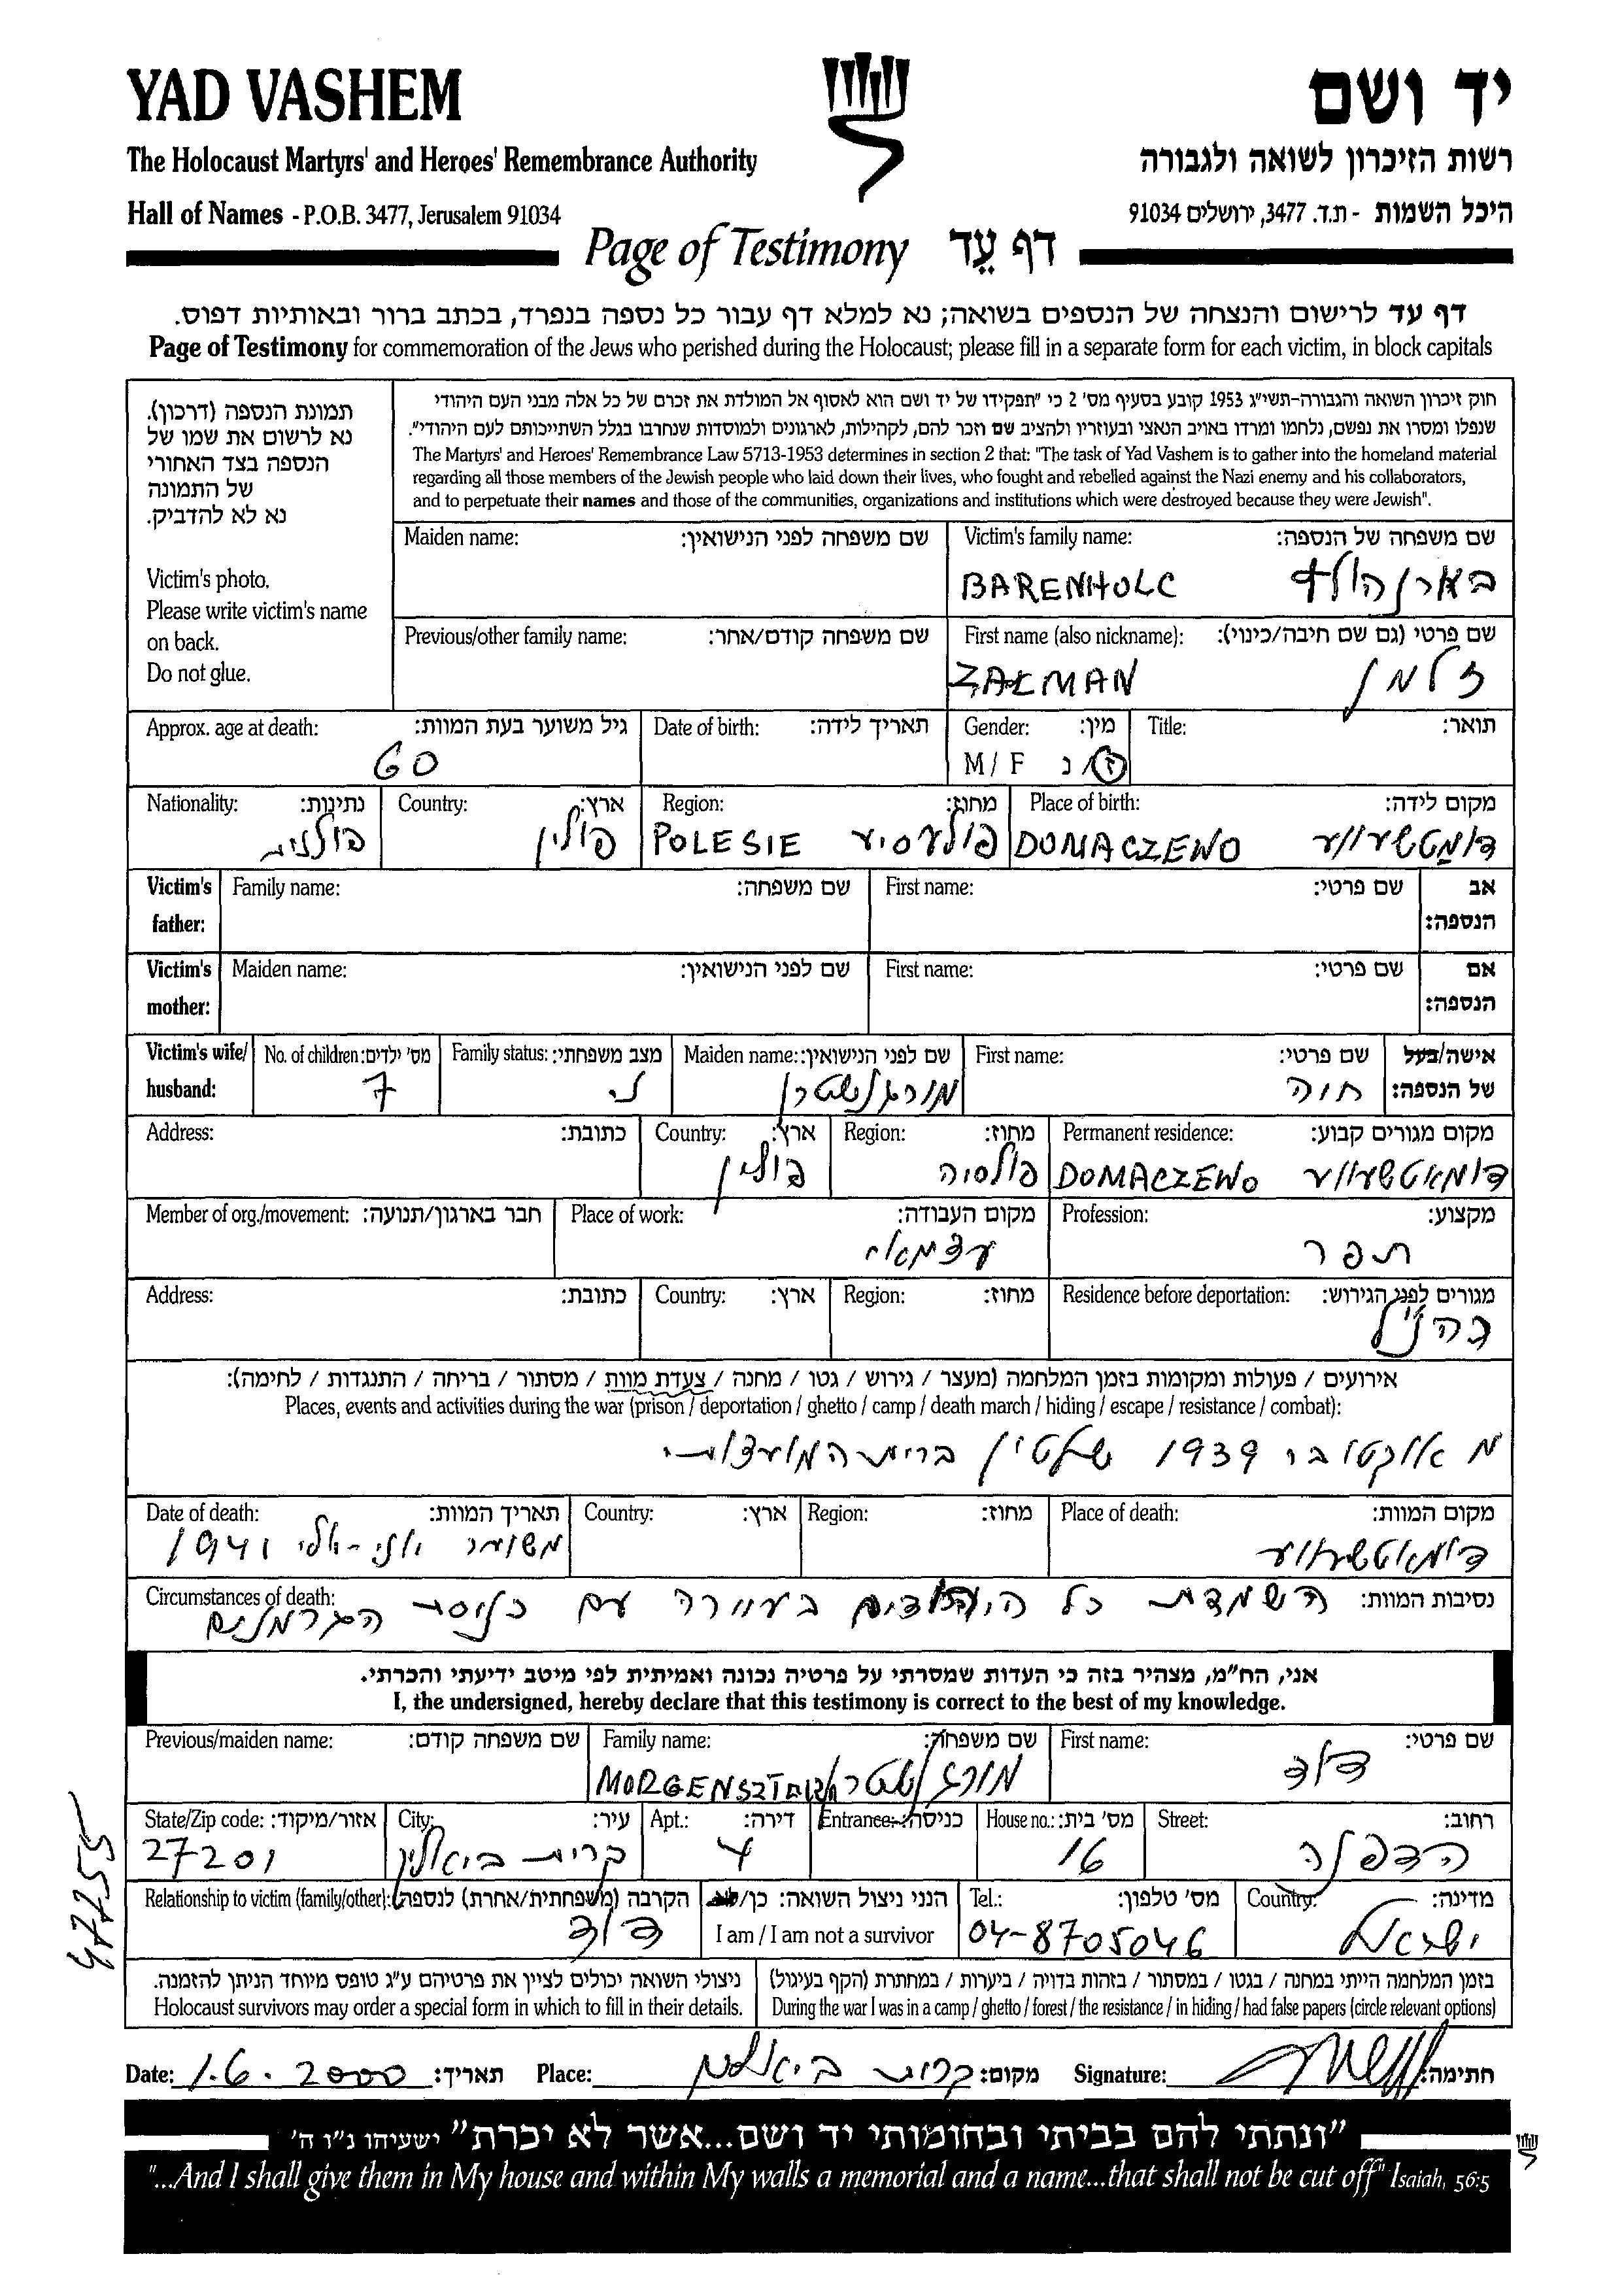 YAD VASHEM יד ושם
The Holocaust Martyrs' and Heroes' Remembrance Authority רשות הזיכרון לשואה ולגבורה
Hall of Names - P.O.B. 3477, Jerusalem 91034 היכל השמות - ת.ד. 3477, ירושלים 91034
Page of Testimony דף עֵד
דף עד לרישום והנצחה של הנספים בשואה; נא למלא דף עבור כל נספה בנפרד, בכתב ברור ובאותיות דפוס.
Page of Testimony for commemoration of the Jews who perished during the Holocaust; please fill in a separate form for each victim, in block capitals
תמונת הנספה (דרכון).
נא לרשום את שמו של
הנספה בצד האחורי
של התמונה
נא לא להדביק.
Victim's photo.
Please write victim's name
on back.
Do not glue.
חוק זיכרון השואה והגבורה-תשי"ג 1953 קובע בסעיף מס' 2 כי "תפקידו של יד ושם הוא לאסוף אל המולדת את זכרם של כל אלה מבני העם היהודי
שנפלו ומסרו את נפשם, נלחמו ומרדו באויב הנאצי ובעוזריו ולהציב שם וזכר להם, לקהילות, לארגונים ולמוסדות שנחרבו בגלל השתייכותם לעם היהודי".
The Martyrs' and Heroes' Remembrance Law 5713-1953 determines in section 2 that: "The task of Yad Vashem is to gather into the homeland material
regarding all those members of the Jewish people who laid down their lives, who fought and rebelled against the Nazi enemy and his collaborators,
and to perpetuate their names and those of the communities, organizations and institutions which were destroyed because they were Jewish".
Maiden name: שם משפחה לפני הנישואין: Victim's family name: שם משפחה של הנספה:
BARENHOLC בארנהולץ
Previous/other family name: שם משפחה קודם/אחר: First name (also nickname): שם פרטי (גם שם חיבה/כינוי):
ZALMAN זלמן
Approx. age at death: גיל משוער בעת המוות: Date of birth: תאריך לידה: Gender: מין: Title: תואר:
60 M / F ז/נ
Nationality: נתינות: Country: ארץ: Region: מחוז: Place of birth: מקום לידה:
פולנית פולין POLESIE פולעסיע DOMACZEWO דומטשעווע
Victim's father: Family name: שם משפחה: First name: שם פרטי: אב הנספה:
Victim's mother: Maiden name: שם לפני הנישואין: First name: שם פרטי: אם הנספה:
Victim's wife/ No. of children: מס' ילדים: Family status: מצב משפחתי: Maiden name: שם לפני הנישואין: First name: שם פרטי: אישה/בעל
husband: 7 נ. מורגנשטרן חוה של הנספה:
Address: כתובת: Country: ארץ: Region: מחוז: Permanent residence: מקום מגורים קבוע:
פולין פולסיה DOMACZEWO דומאטשעווע
Member of org./movement: חבר בארגון/תנועה: Place of work: מקום העבודה: Profession: מקצוע:
עצמאי תפר
Address: כתובת: Country: ארץ: Region: מחוז: Residence before deportation: מגורים לפני הגירוש:
כהנ"ל
אירועים / פעולות ומקומות בזמן המלחמה (מעצר / גירוש / גטו / מחנה / צעדת מוות / מסתור / בריחה / התנגדות / לחימה):
Places, events and activities during the war (prison / deportation / ghetto / camp / death march / hiding / escape / resistance / combat):
מ אוקטובר 1939 שלטון ברית המועצות
Date of death: תאריך המוות: Country: ארץ: Region: מחוז: Place of death: מקום המוות:
משוער יוני-יולי 1941 דומאטשעווע
Circumstances of death: נסיבות המוות: השמדת כל היהודים בעיירה עם כניסת הגרמנים
אני, הח"מ, מצהיר בזה כי העדות שמסרתי על פרטיה נכונה ואמיתית לפי מיטב ידיעתי והכרתי.
I, the undersigned, hereby declare that this testimony is correct to the best of my knowledge.
Previous/maiden name: שם משפחה קודם: Family name: שם משפחה: First name: שם פרטי:
MORGENSZTERN מורגנשטרן דוד
State/Zip code: אזור/מיקוד: City: עיר: Apt.: דירה: Entrance: כניסה: House no.: מס' בית: Street: רחוב:
27201 קרית ביאליק 4 16 הדפנה
Relationship to victim (family/other): הקרבה (משפחתית/אחרת) לנספה: הנני ניצול השואה: כן/לא Tel.: מס' טלפון: Country: מדינה:
דוד I am / I am not a survivor 04-8705046 ישראל
ניצולי השואה יכולים לציין את פרטיהם ע"ג טופס מיוחד הניתן להזמנה. בזמן המלחמה הייתי במחנה / בגטו / במסתור / בזהות בדויה / ביערות / במחתרת (הקף בעיגול)
Holocaust survivors may order a special form in which to fill in their details. During the war I was in a camp / ghetto / forest / the resistance / in hiding / had false papers (circle relevant options)
Date: 1.6.2000 תאריך: Place: קרית ביאליק מקום: Signature: חתימה:
"ונתתי להם בביתי ובחומותי יד ושם...אשר לא יכרת" ישעיהו נ"ו ה'
"...And I shall give them in My house and within My walls a memorial and a name...that shall not be cut off" Isaiah, 56:5
47255